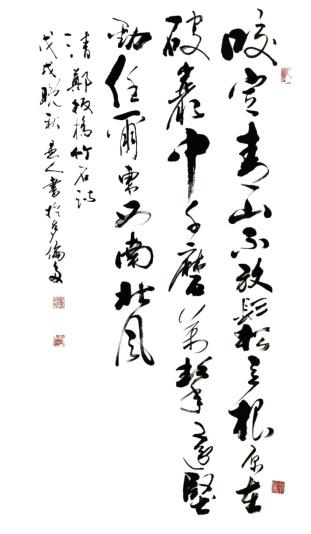 咬定青山不放鬆立根原在
破巖中千磨萬擊還堅
勁任爾東西南北風
清鄭板橋竹石詩
戊戌晚秋人書於多倫多